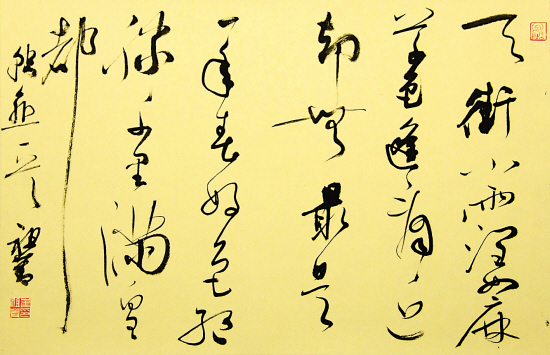 天街小雨潤如酥
草色遙看近
却無最是
一年春好處絕
勝滿皇
都